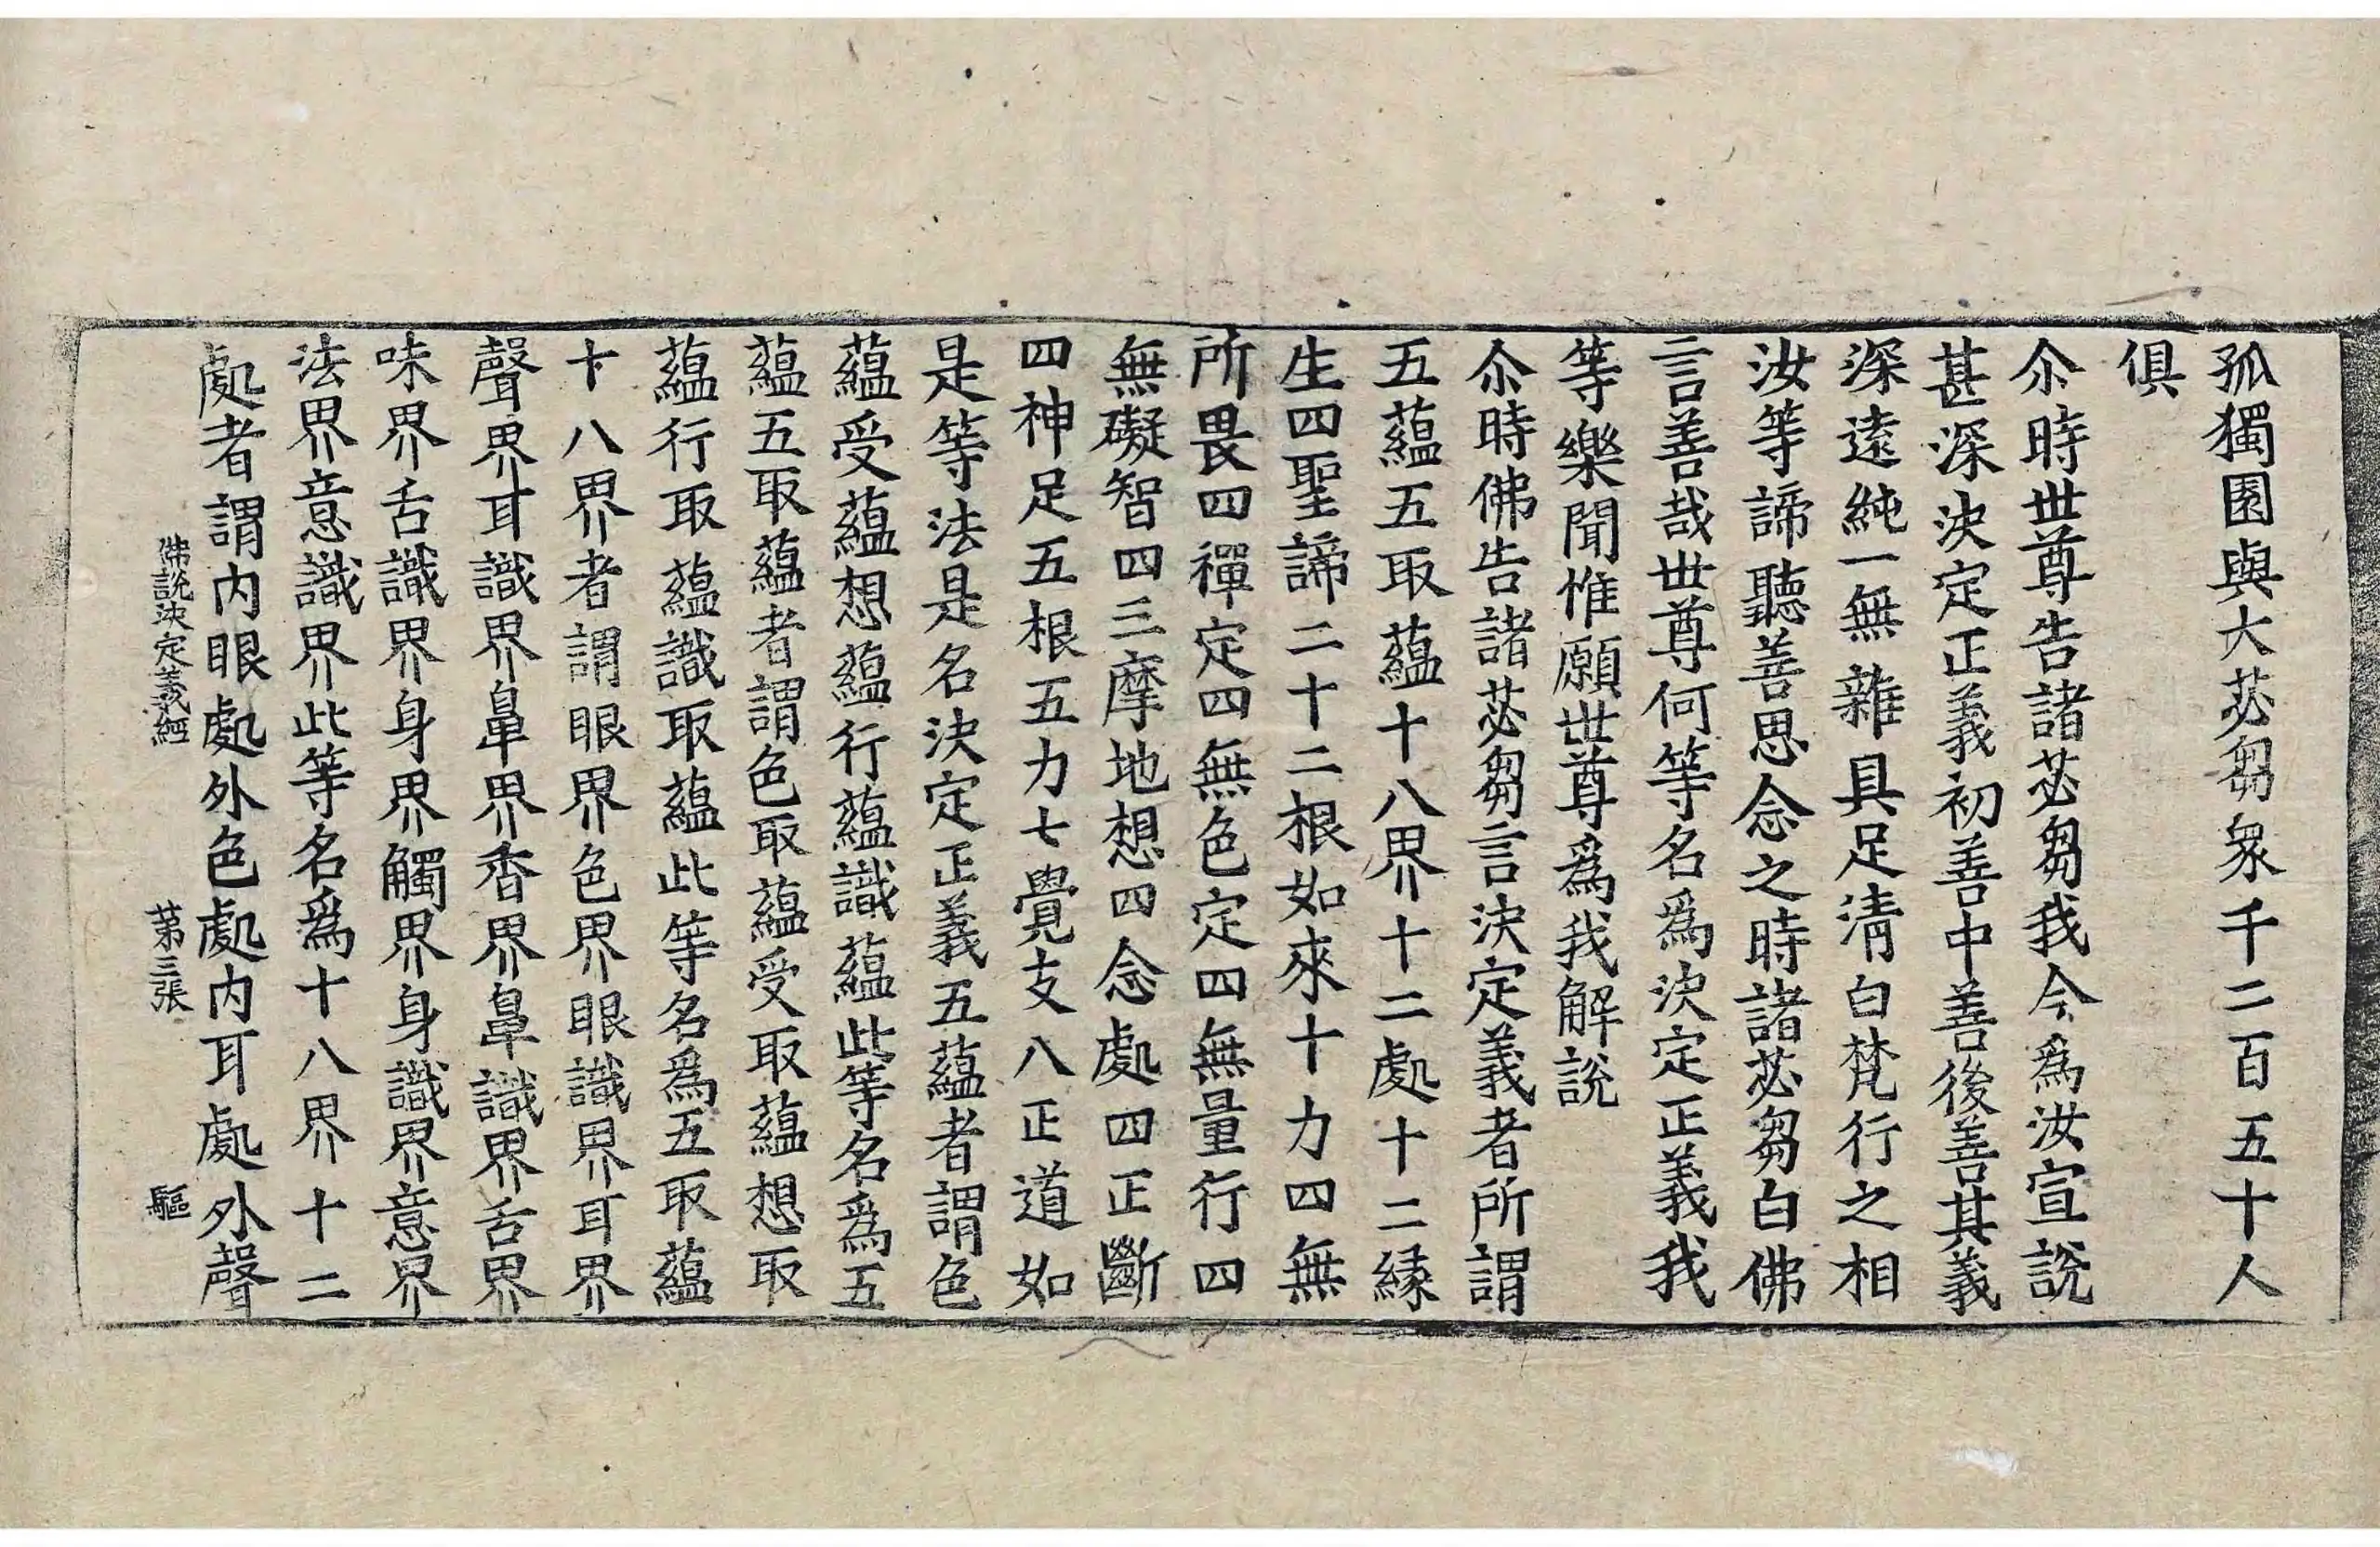 孤獨園與大苾芻衆千二百五十人
俱
尒時世尊告諸苾芻我今爲汝宣說
甚深決定正義初善中善後善其義
深遠純一無雜具足清白梵行之相
汝等諦聽善思念之時諸苾芻白佛
言善哉世尊何等名爲決定正義我
等樂聞惟願世尊爲我解說
尒時佛告諸苾芻言決定義者所謂
五蘊五取蘊十八界十二處十二縁
生四聖諦二十二根如來十力四無
所畏四禪定四無色定四無量行四
無礙智四三摩地想四念處四正斷
四神足五根五力七覺支八正道如
是等法是名決定正義五蘊者謂色
蘊受蘊想蘊行蘊識蘊此等名爲五
蘊五取蘊者謂色取蘊受取蘊想取
蘊行取蘊識取蘊此等名爲五取蘊
十八界者謂眼界色界眼識界耳界
聲界耳識界鼻界香界鼻識界舌界
味界舌識界身界觸界身識界意界
法界意識界此等名爲十八界十二
處者謂内眼處外色處内耳處外聲
佛說決定義經 第三張 驅